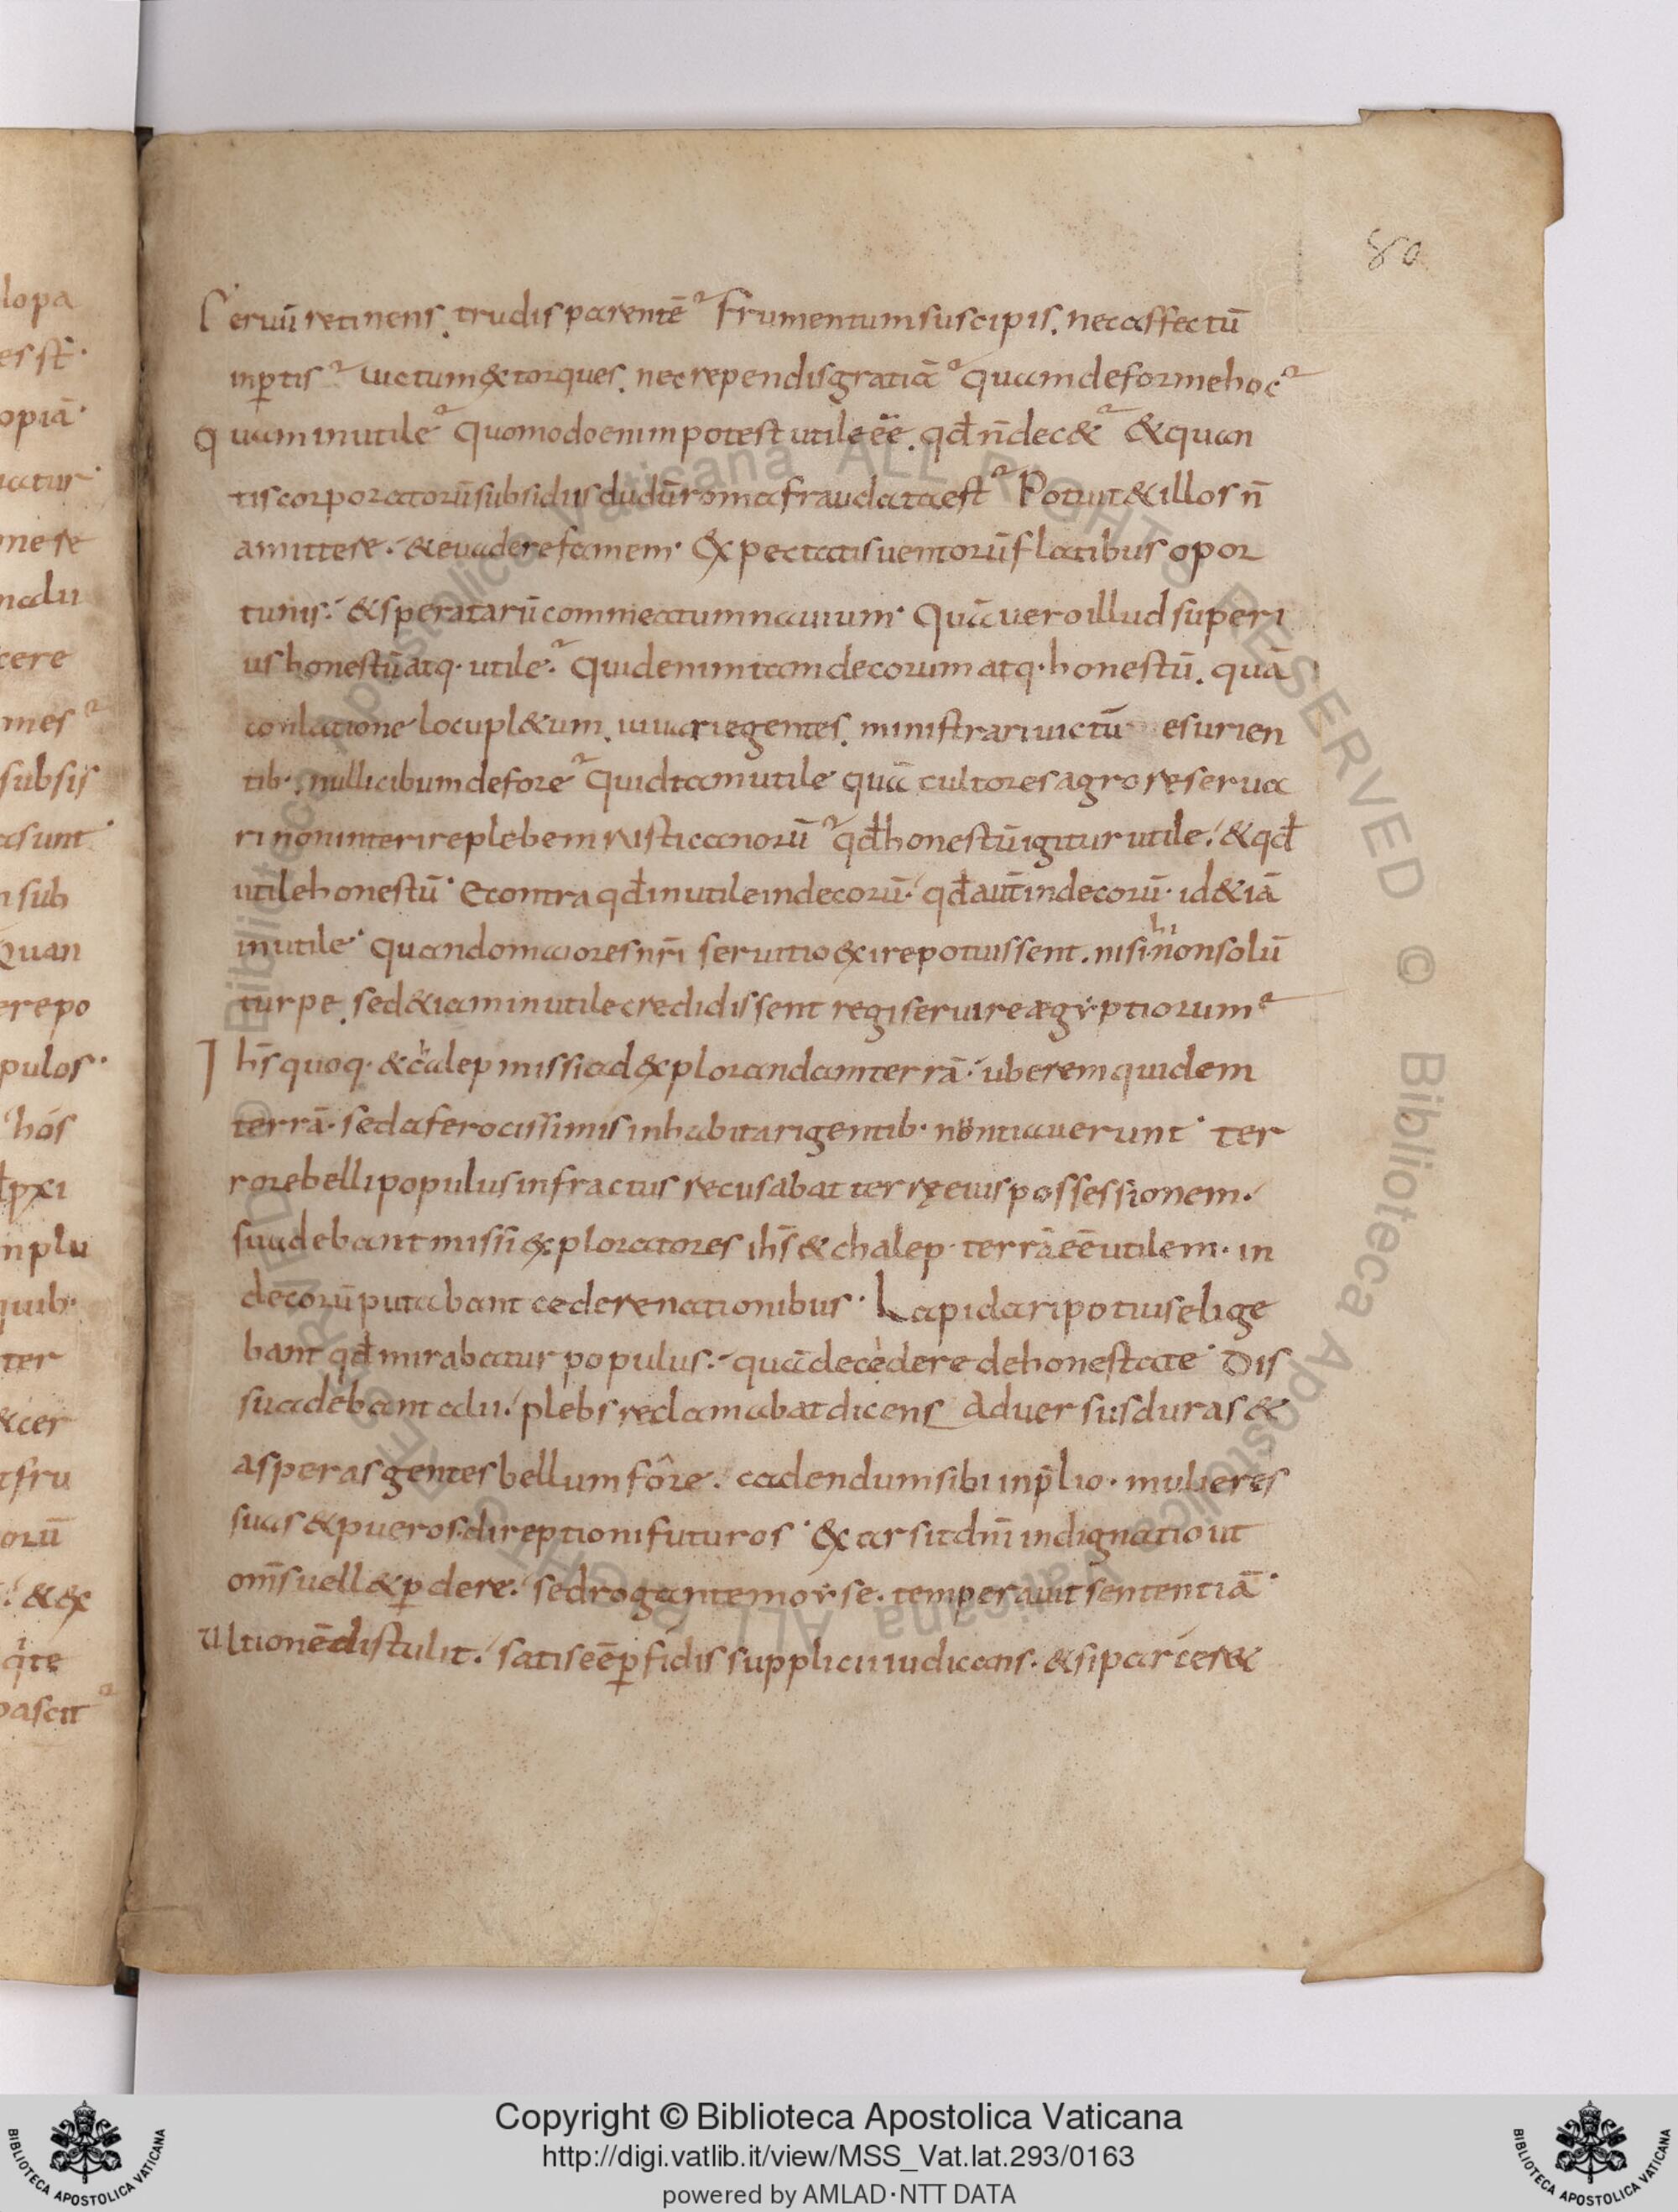 lopa
es st̄·
opiā·
uatur·
nese
nadu
cere
mes
subsis
asunt·
n sub
Quan
erepo
pulos·
hos
n plu
quib·
ter
&cer
tfru
orū
&ex
qite
pascit
80
Seruū retinens. trudis parentē? Frumentum suscipis. nec affectū
inꝑtis? uictum extorques. nec rependis gratiā? quam deforme hoc?
Quam inutile? Quomodo enim potest utile eē. qd̄ n̄ dec&? &quan
tis corporatorū subsidiis dudū roma fraudata est? Potuit & illos n̄
amittere. & euadere famem· Expectatis uentorū flatibus opor
tunis. & speratarū commeatum nauium· Quā uero illud superi
us honestū atq· utile? Quid enim tam decorum atq· honestū. quā
conlatione locupl&um. iuuari egentes. ministrari uictū esurien
tib·. nulli cibum defore? Quid tam utile quā cultores agro reserua
ri non interire plebem rusticanorū? qd̄ honestū igitur utile. & qd̄
utile honestū· Econtra qd̄ inutile indecorū. qd̄ aut̄ indecorū· id &iā
inutile· Quando maiores nr̄i seruitio exire potuissent. nisi hi non solū
turpe. sed &iam inutile credidissent regi seruire ægyptiorum?
Ihs̄ quoq· & chalep missi ad explorandam terrā. uberem quidem
terrā· sed a ferocissimis inhabitari gentib· nuntiauerunt· Ter
rore belli populus infractus recusabat terrę eius possessionem.
suadebant missi exploratores ihs̄ & chalep· terrā eē utilem· in
decorū putabant cedere nationibus· Lapidari potius elige
bant qd̄ mirabatur populus. quā decedere de honestate· Dis
suadebant alii. plebs reclamabat dicens Aduersus duras &
asperas gentes bellum fore. cadendum sibi in p̄lio· mulieres
suas & pueros direptioni futuros· Exarsit dn̄i indignatio ut
oms̄ uell& ꝑdere. sed rogante moyse· temperauit sententiā·
Ultionē distulit. satis eē ꝑfidis supplicii iudicans· & si parceret
© Biblioteca Apostolica Vaticana ALL RIGHTS RESERVED © Biblioteca Apostolica Vaticana ALL RIGHTS RESERVED
BIBLIOTECA APOSTOLICA VATICANA
Copyright © Biblioteca Apostolica Vaticana
http://digi.vatlib.it/view/MSS_Vat.lat.293/0163
powered by AMLAD·NTT DATA
BIBLIOTECA APOSTOLICA VATICANA